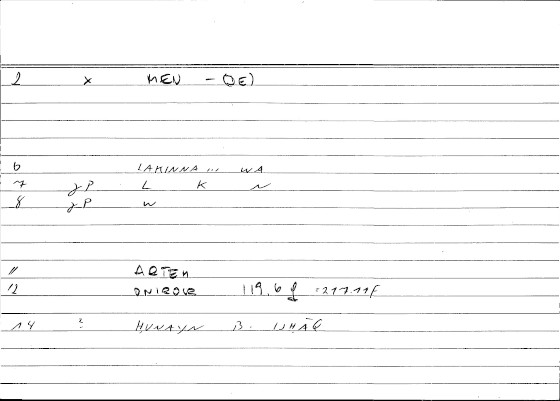 2 x MEN -
6 LAMINNA ... WA
7 γP L K N
8 γP W
11 ARTEM
12 ONIROCR 119, 6 f =217.11f
14 ? HUNAYN B. ISHĀQ